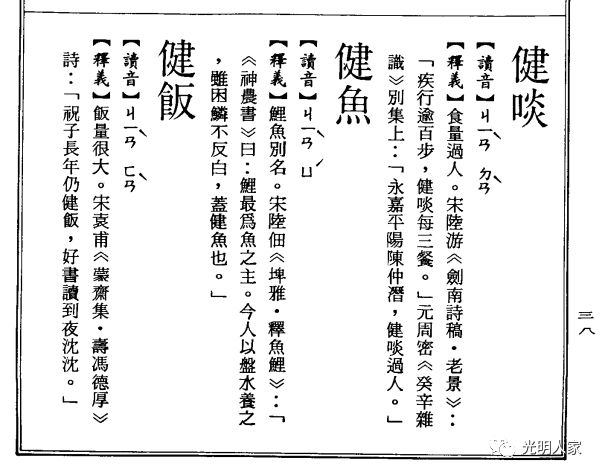 健啖
【讀音】ㄐㄧㄢˋ ㄉㄢˋ
【釋義】食量過人。宋陸游《劍南詩稿·老景》：
「疾行逾百步，健啖每三餐。」元周密《癸辛雜
識》別集上：「永嘉平陽陳仲潛，健啖過人。」
健魚
【讀音】ㄐㄧㄢˋ ㄩˊ
【釋義】鯉魚別名。宋陸佃《埤雅·釋魚鯉》：「
《神農書》曰：鯉最爲魚之主。今人以盤水養之
，雖困鱗不反白，蓋健魚也。」
健飯
【讀音】ㄐㄧㄢˋ ㄈㄢˋ
【釋義】飯量很大。宋袁甫《蒙齋集·壽馮德厚》
詩：「祝子長年仍健飯，好書讀到夜沈沈。」
三八
光明人家